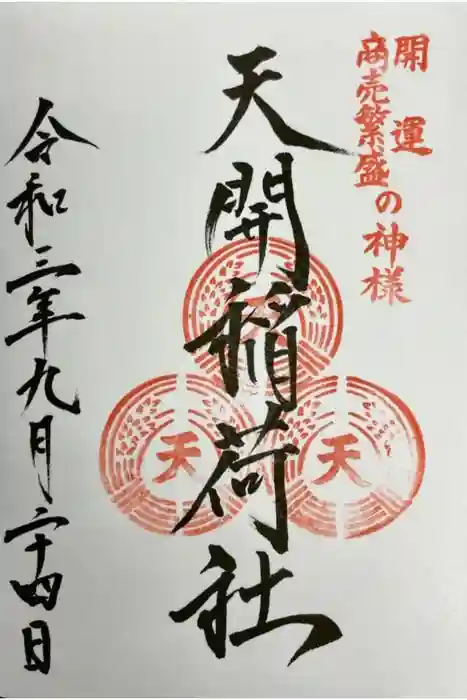 開運
商売繁盛の神様
天開稲荷社
天
天
令和三年九月二十四日